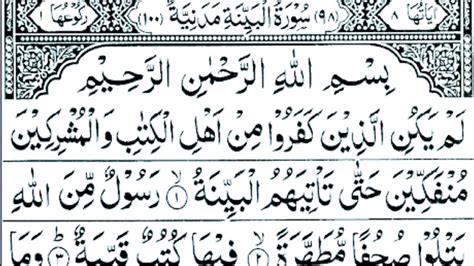 اٰيَاتُهَا ٨ (٩٨) سُوْرَةُ الْبَيِّنَةِ مَدَنِيَّةٌ (١٠٠) رُكُوْعُهَا ١
بِسْمِ اللهِ الرَّحْمٰنِ الرَّحِيْمِ
لَمْ يَكُنِ الَّذِيْنَ كَفَرُوْا مِنْ اَهْلِ الْكِتٰبِ وَالْمُشْرِكِيْنَ
مُنْفَكِّيْنَ حَتّٰى تَاْتِيَهُمُ الْبَيِّنَةُ ۙ ١ رَسُوْلٌ مِّنَ اللهِ
يَتْلُوْا صُحُفًا مُّطَهَّرَةً ۙ ٢ فِيْهَا كُتُبٌ قَيِّمَةٌ ؕ ٣ وَمَا